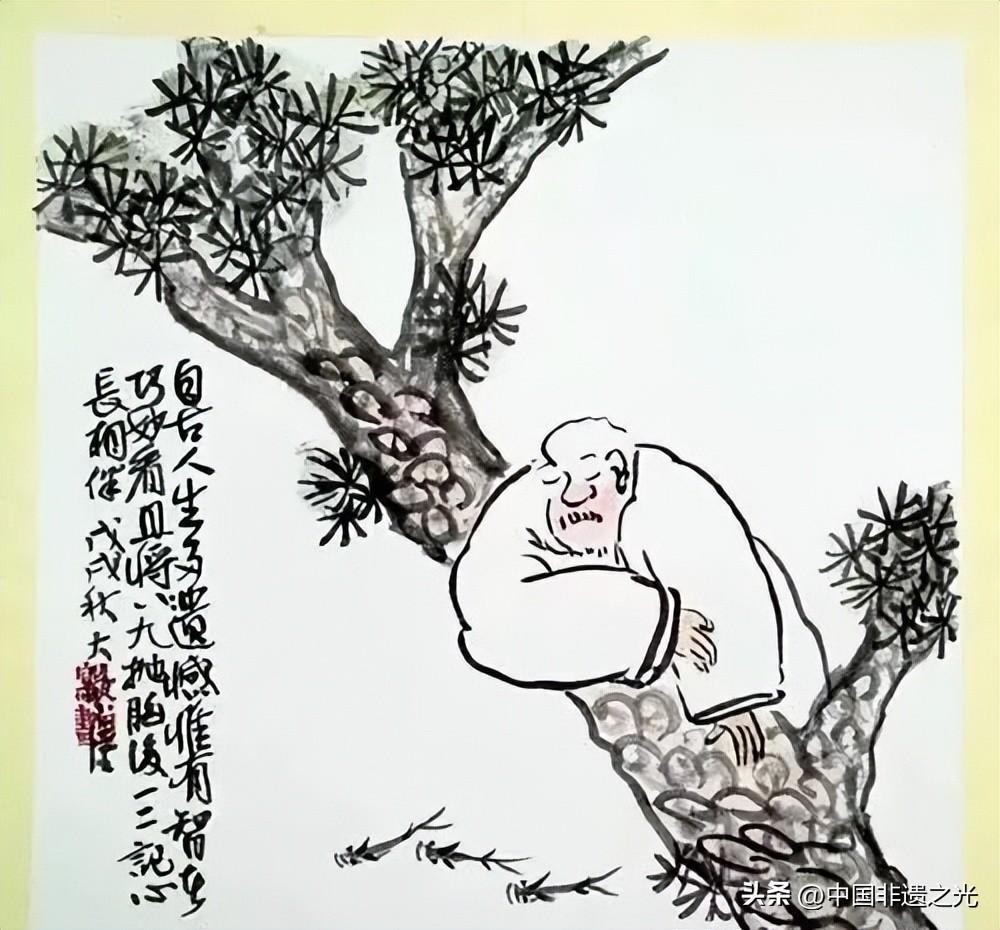 自古人生多遺憾惟有智者
巧妙看且將八九抛腦後一二記心
長相伴 戊戌秋大
头条 @中国非遗之光